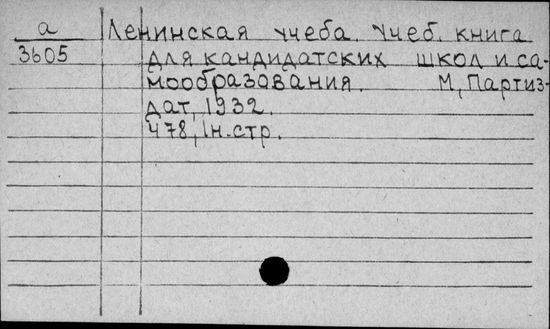 а Ленинская учеба. Учеб. книга
3605 для кандидатских школ и са-
мообразования. М, Партиз-
дат, 1932.
478, 1н. стр.